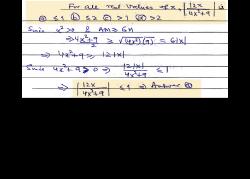 For all real values of x, |12x / 4x²+9| is
ⓐ ≤ 1 ⓑ ≤ 2 ⓒ > 1 ⓓ > 2
Since x² > 0 & AM ≥ GM
⇒ 4x²+9 / 2 ≥ √(4x²)(9) = 6|x|
⇒ 4x²+9 ≥ 12|x|
Since 4x²+9 > 0 ⇒ 12|x| / 4x²+9 ≤ 1
⇒ |12x / 4x²+9| ≤ 1 ⇒ Answer ⓐ